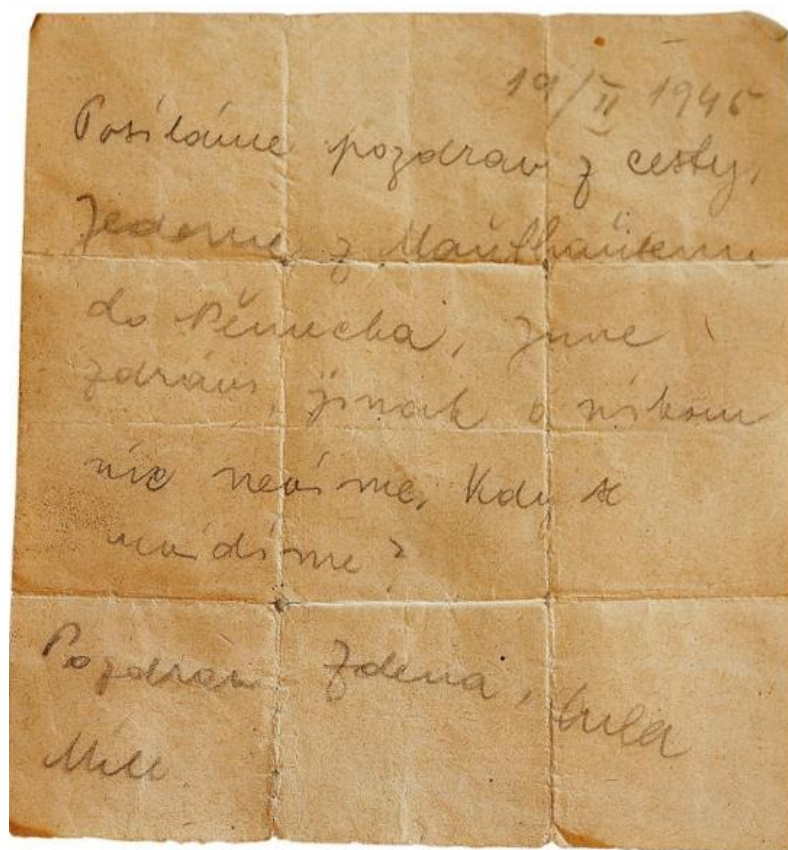 19/II 1945
Posíláme pozdrav z cesty,
Jedeme z Maŭthaŭsenu
do Německa, jsme
zdrávi, jinak o nikom
nic nevíme, Kdy se
uvidíme?
Pozdrav Zdena,